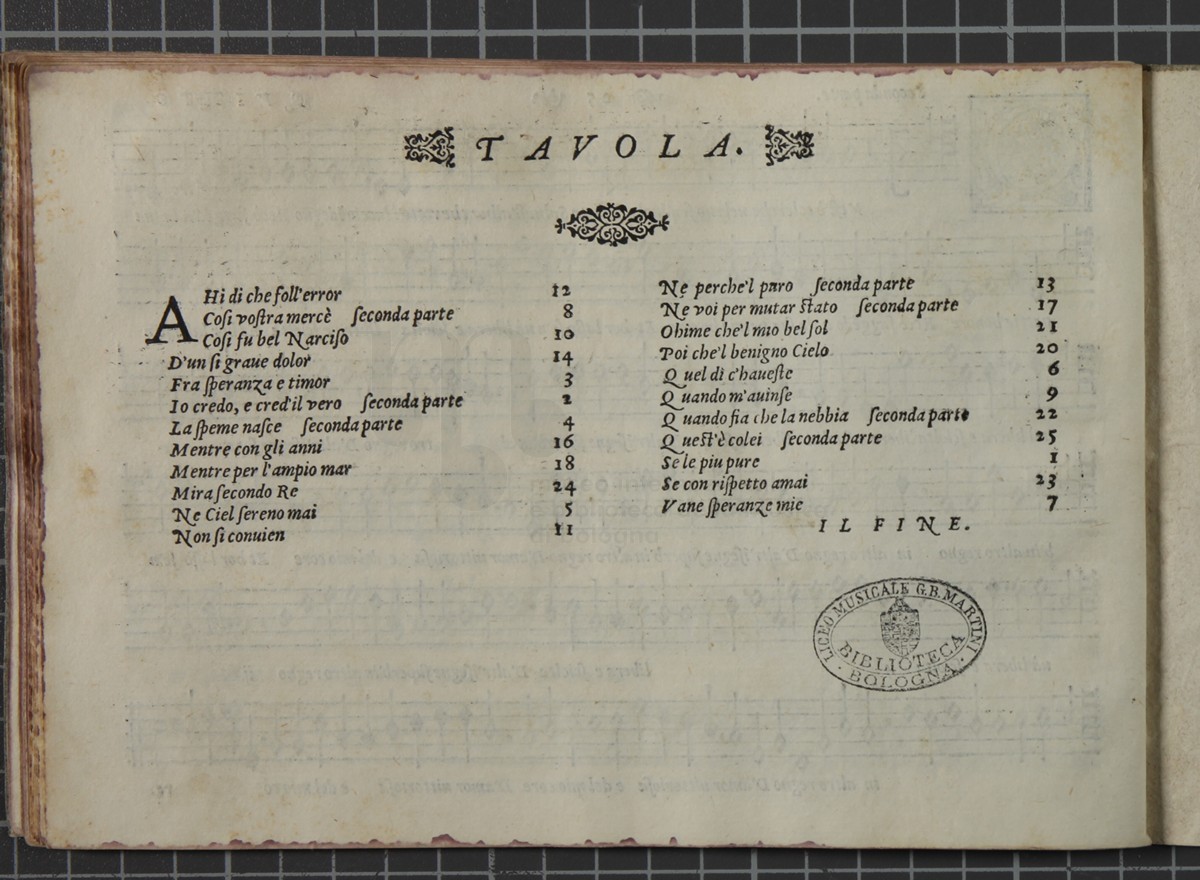 TAVOLA.
AHi di che foll'error 12
Cosi vostra mercè seconda parte 8
Cosi fu bel Narciso 10
D'un si graue dolor 14
Fra speranza e timor 3
Io credo, e cred'il vero seconda parte 2
La speme nasce seconda parte 4
Mentre con gli anni 16
Mentre per l'ampio mar 18
Mira secondo Re 24
Ne Ciel sereno mai 5
Non si conuien 11
Ne perche'l puro seconda parte 13
Ne voi per mutar stato seconda parte 17
Ohime che'l mio bel sol 21
Poi che'l benigno Cielo 20
Quel dì c'haueste 6
Quando m'auinse 9
Quando fia che la nebbia seconda parte 22
Quest'è colei seconda parte 25
Se le piu pure 1
Se con rispetto amai 23
Vane speranze mie 7
IL FINE.
LICEO MUSICALE G.B. MARTINI
BIBLIOTECA
· BOLOGNA ·